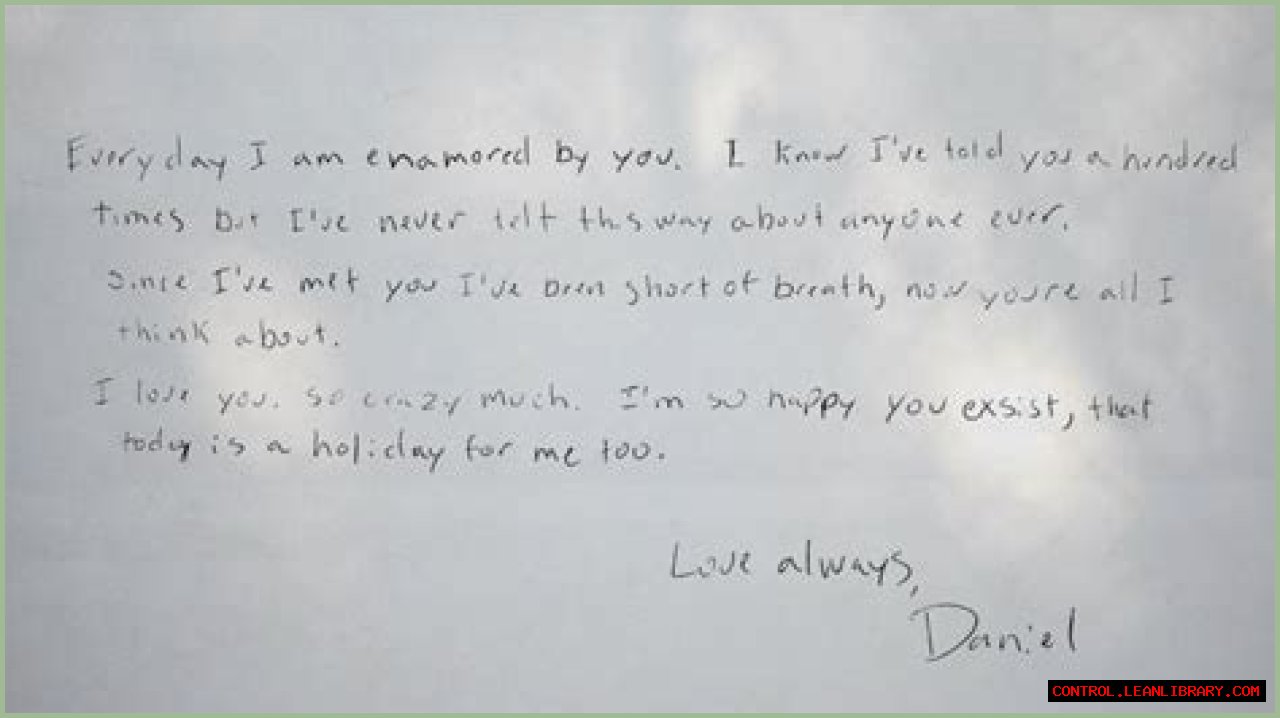 Everyday I am enamored by you. I know I've told you a hundred
times but I've never felt this way about anyone ever.
Since I've met you I've been short of breath, now youre all I
think about.
I love you. so crazy much. I'm so happy you exsist, that
today is a holiday for me too.
Love always,
Daniel
CONTROL.LEANLIBRARY.COM